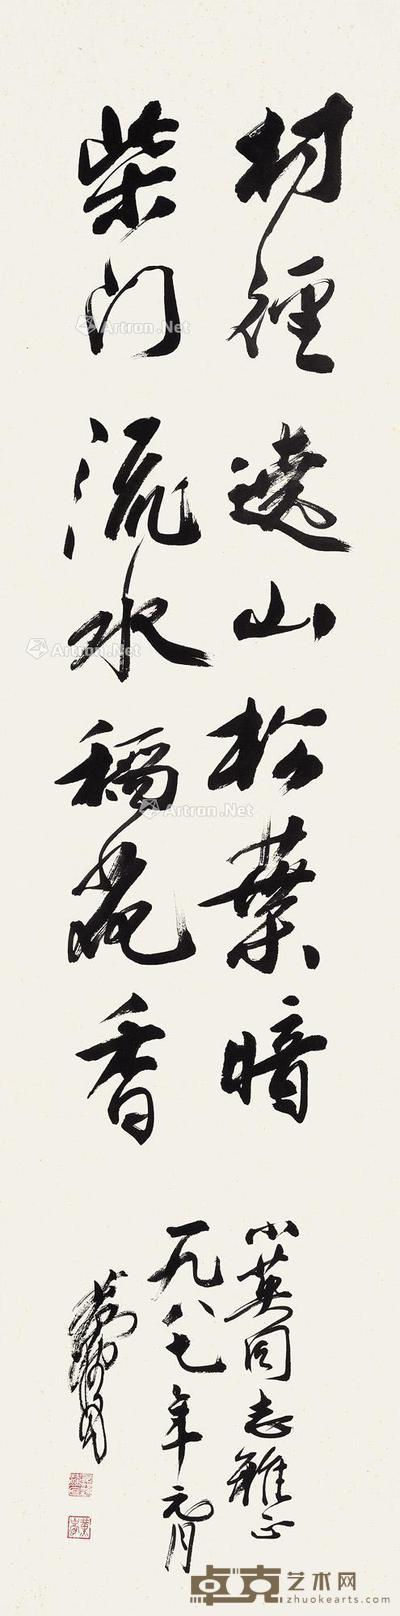 村径遶山松葉暗
柴门流水稻花香
小英同志雅正
一九八七年元月
Artron.Net
Artron.Net
Artron.Net
卓克艺术网
zhuokearts.com